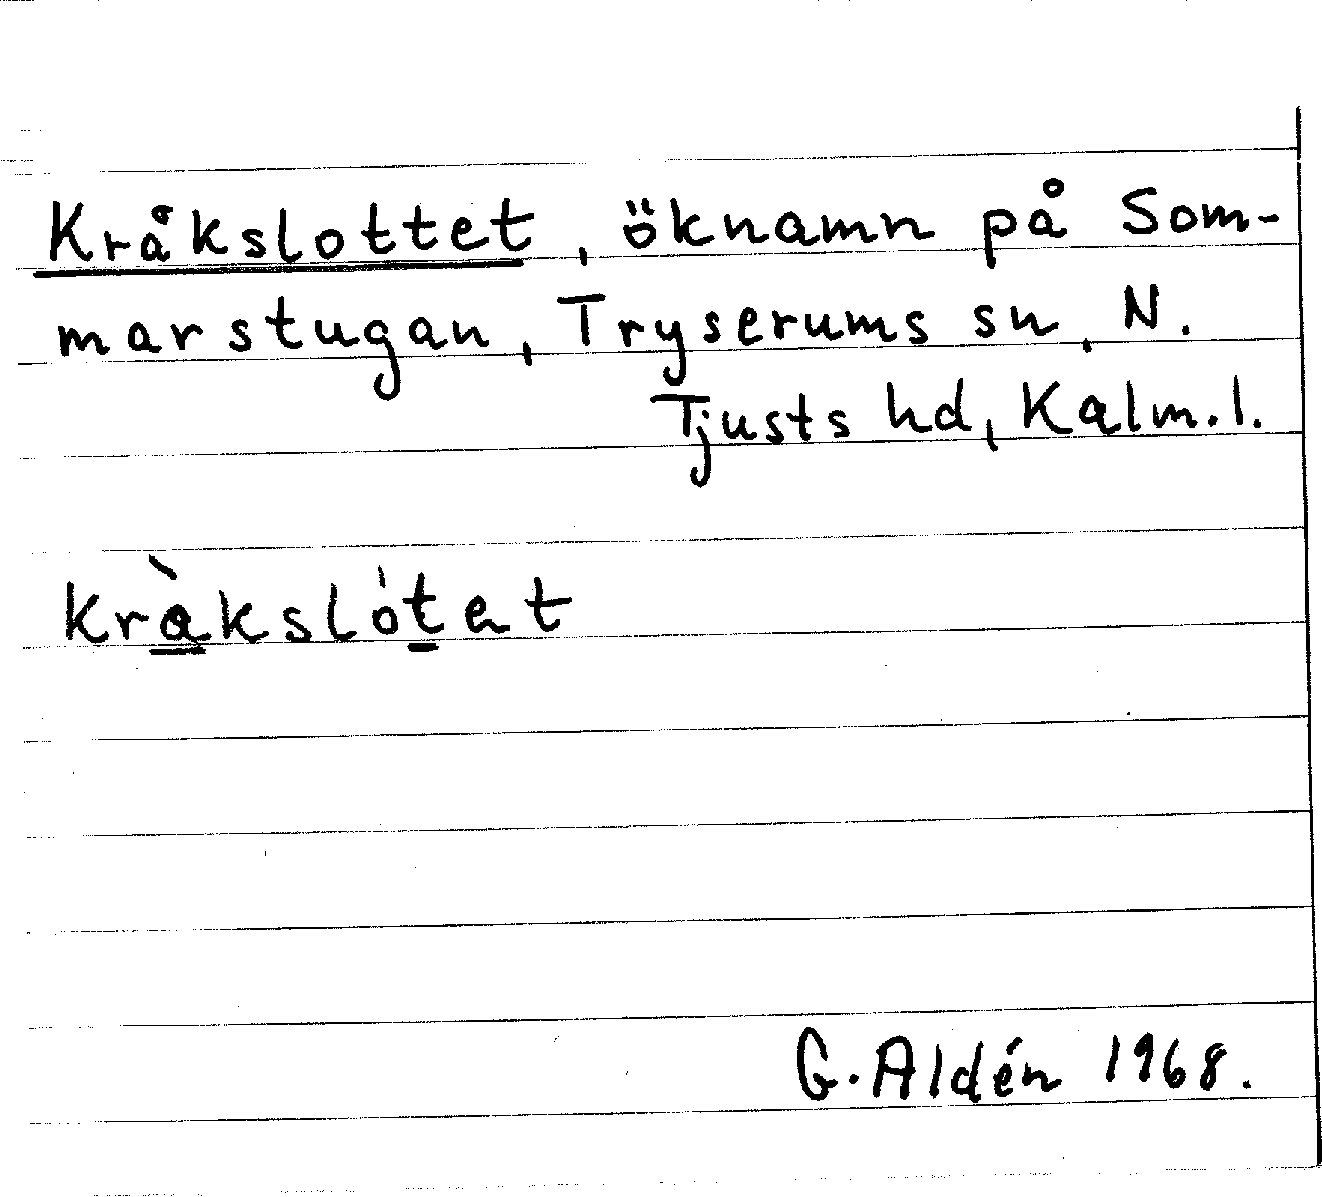 Kråkslottet, öknamn på Som-
marstugan, Tryserums sn, N.
Tjusts hd, Kalm. l.
kràkslótet
G. Aldén 1968.